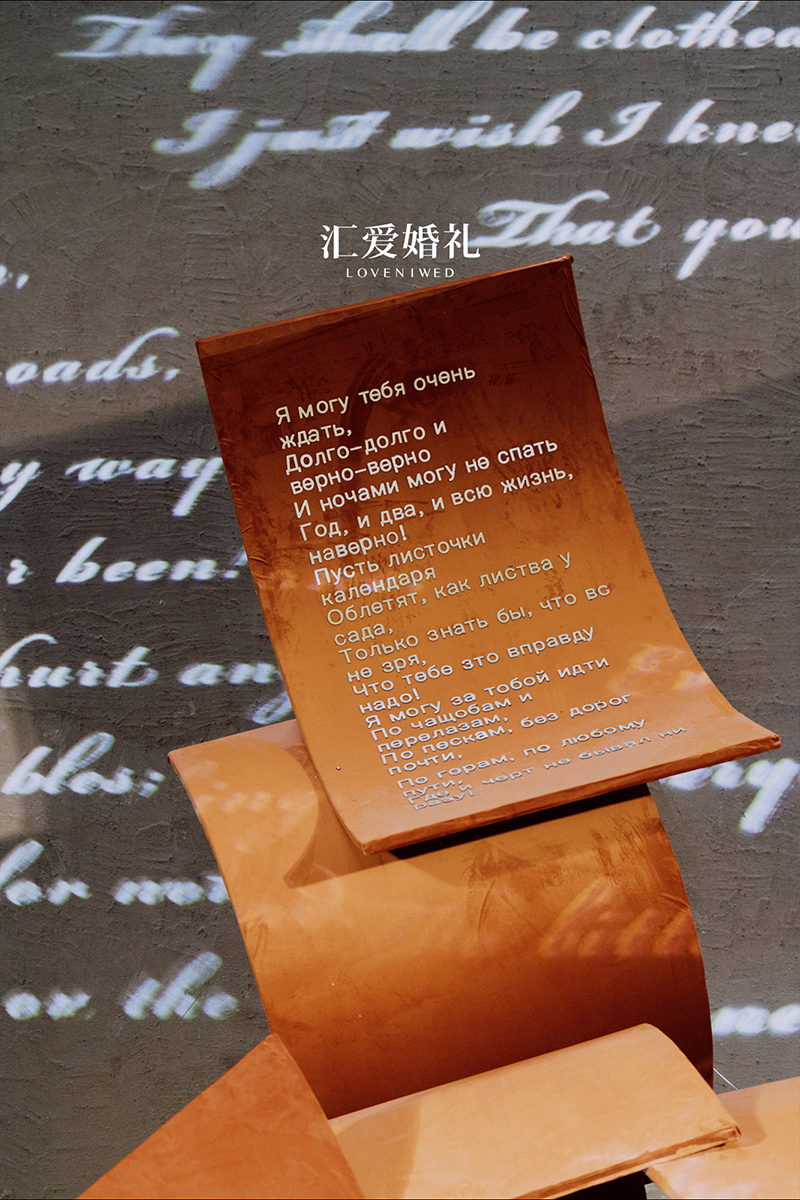 They shall be clothed
I just wish I knew
That you
汇爱婚礼
LOVENIWED
oads,
Я могу тебя очень
ждать,
Долго-долго и
верно-верно
y way
И ночами могу не спать
Год, и два, и всю жизнь,
наверно!
r been!
Пусть листочки
календаря
Облетят, как листва у
сада,
Только знать бы, что вс
не зря,
hurt an
Что тебе это вправду
надо!
Я могу за тобой идти
По чащобам и
перелазам,
По пескам, без дорог
почти,
По горам, по любому
пути,
Где и черт не бывал ни
разу!